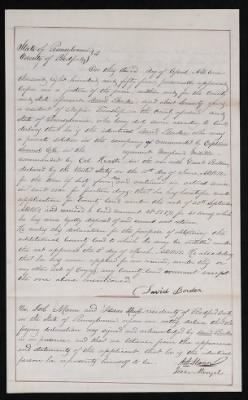 State of Pennsylvania } ss
County of Bedford }
On this third day of April A.D. one
thousand, eight hundred and fifty five, personally appeared
before me a justice of the peace within and for the county
and state aforesaid David Border
a resident of Township in the County and
state of Pennsylvania, who being duly sworn according to law
declares that he is the identical David Border who was
a private soldier in the company commanded by Captain
in the regiment Maryland
commanded by Col. in the war with Great Britain
declared by the United States on the 18th day of June A.D. 1812
for the term of and continued in actual service
in said war for days; that he has heretofore made
application for bounty land under the act of 28th September
1850 and received a land warrant No. for 40 acres which
he has since legally disposed of and cannot now return.
He makes this declaration for the purpose of obtaining the
additional bounty land to which he may be entitled under
the act approved the 3rd day of March 1855. He also declares
that he has never applied for nor received under this or
any other act of Congress any bounty land warrant except
the one above mentioned.
David Border
We, and Isaac Mengel residents of Bedford County
in the State of Pennsylvania, upon our oaths, declare that the
foregoing declaration was signed and acknowledged by David Border
in our presence and that we believe from the appearance
and statements of the applicant that he is the identical
person he represents himself to be.
Isaac Mengel